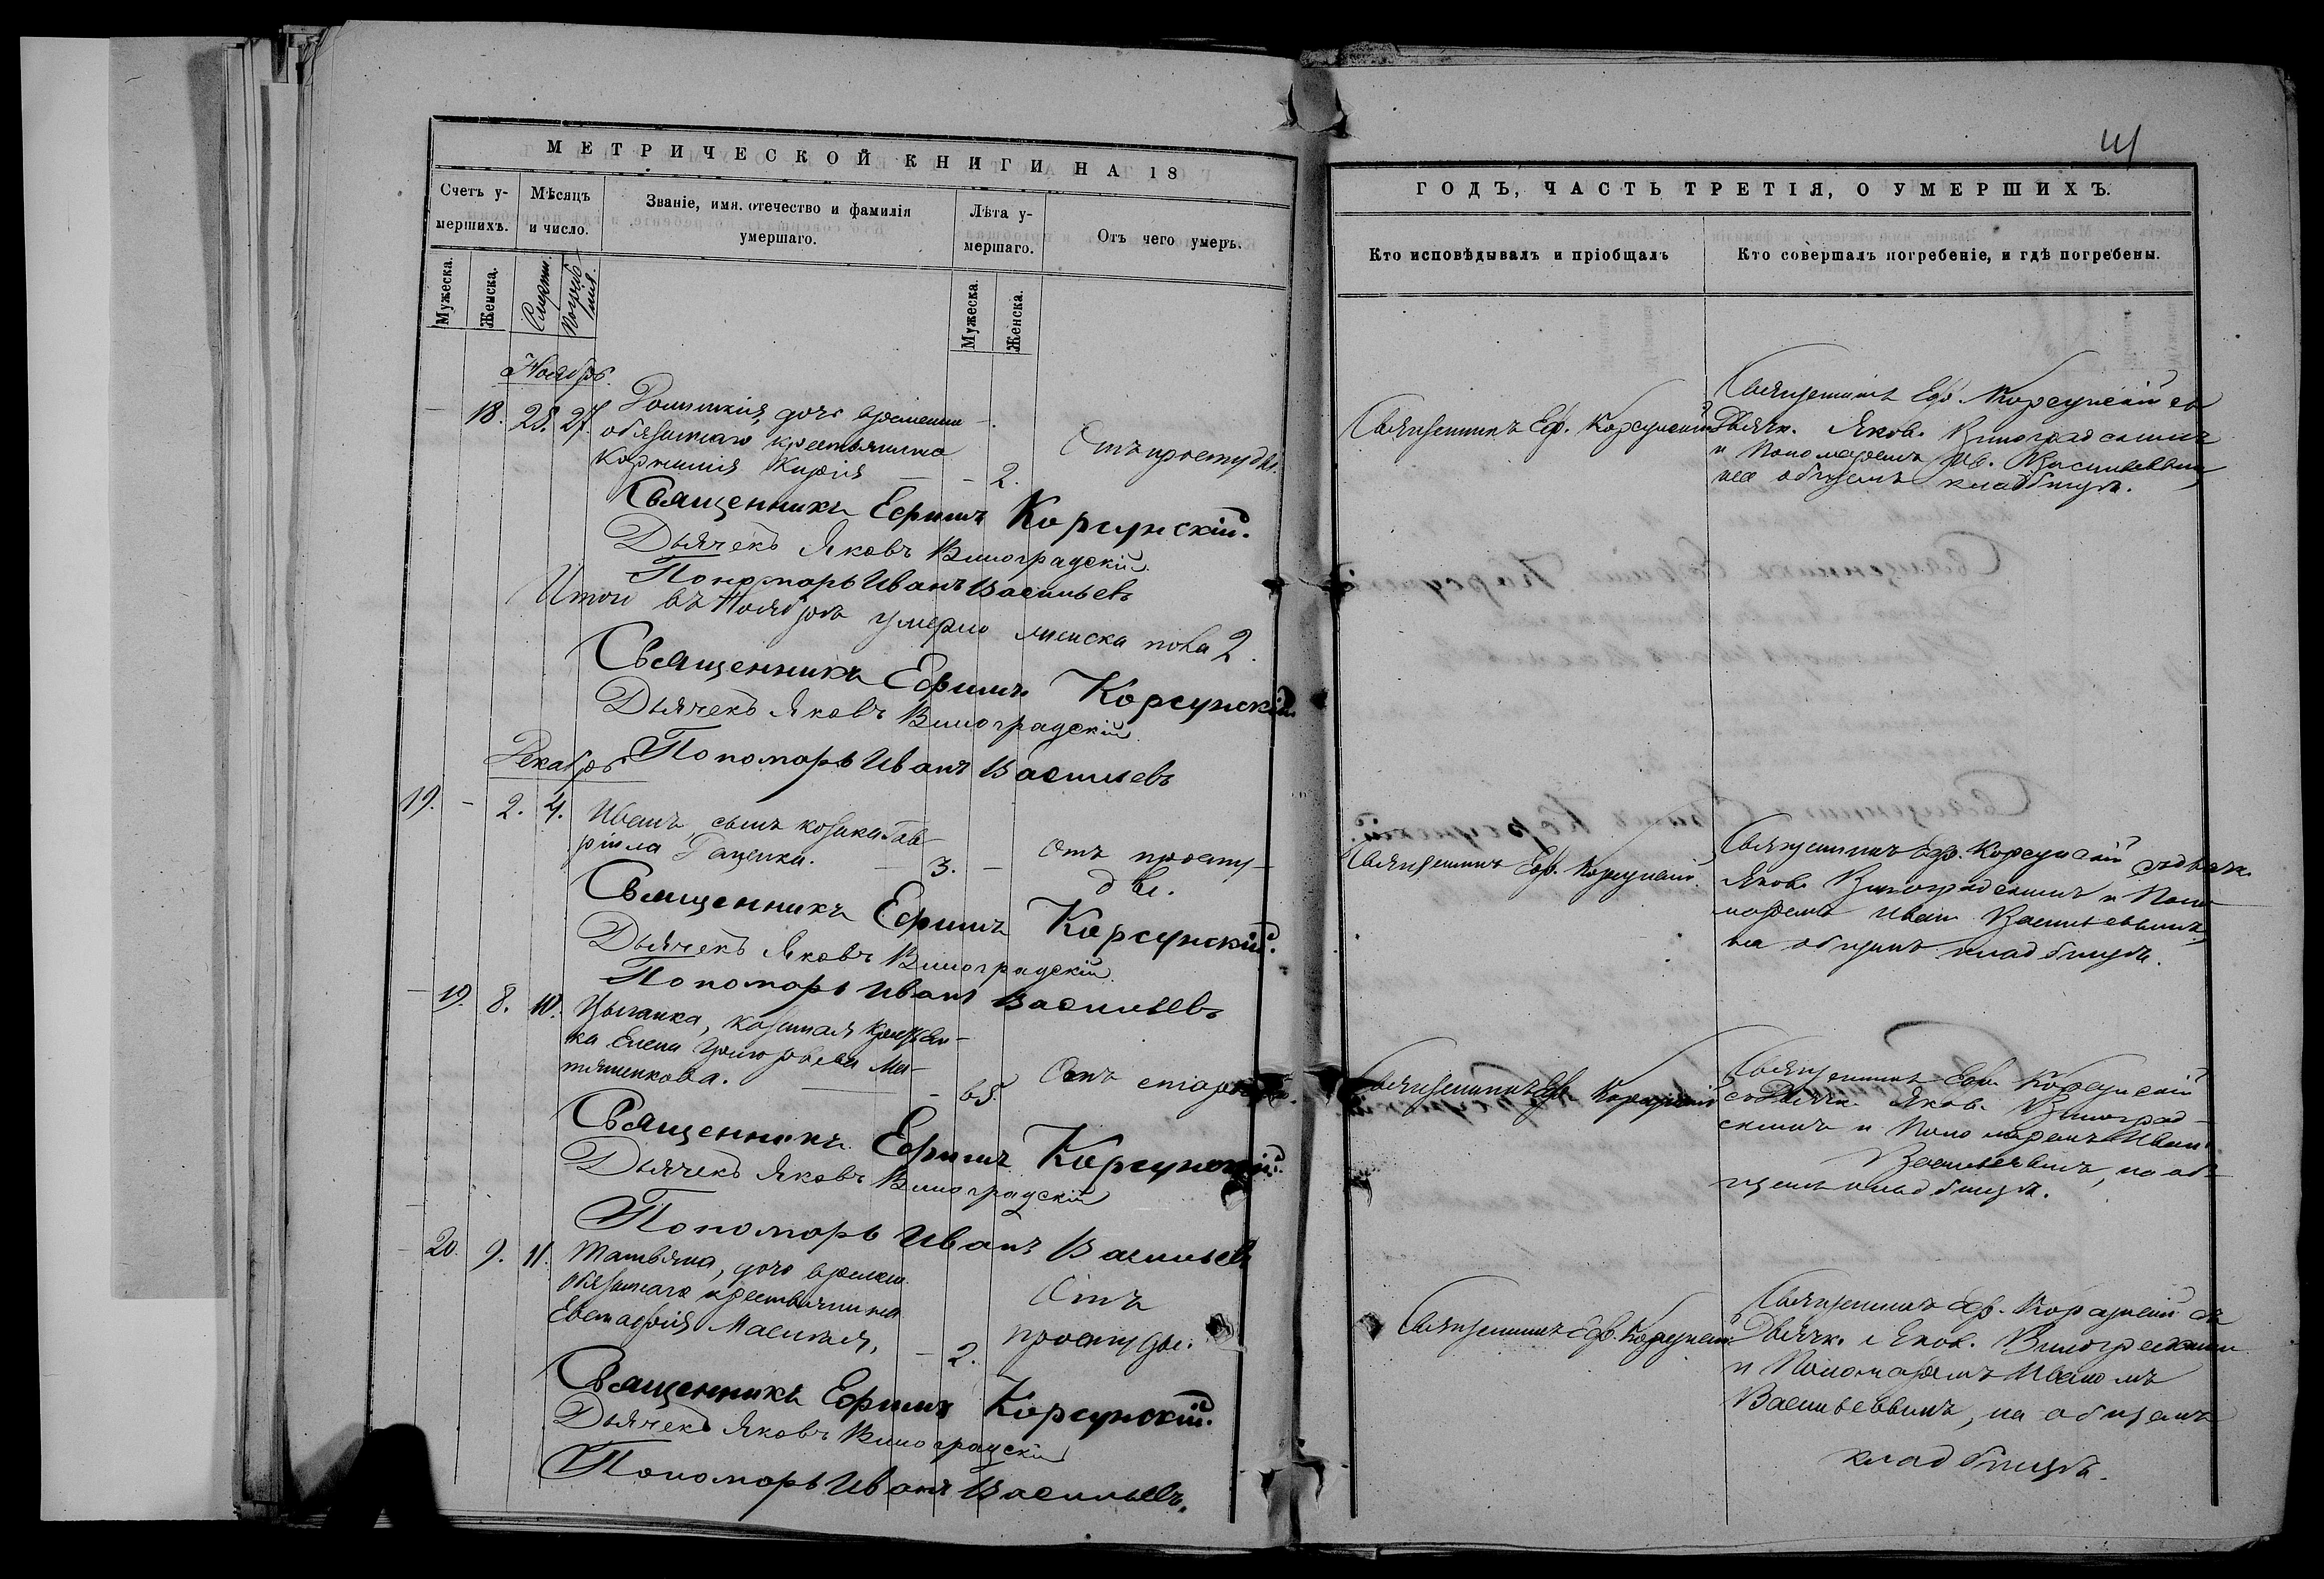 МЕТРИЧЕСКОЙ КНИГИ НА 18
Счетъ у-
мершихъ.
Мѣсяцъ
и число.
Званіе, имя, отечество и фамилія
умершаго.
Лѣта у-
мершаго.
Отъ чего умеръ.
Мужеска.
Женска.
Смерти.
Погребе-
нія.
Мужеска.
Женска.
Ноябрь.
18. 25. 27.
дочь временно
обязаннаго крестьянина
Корнилія
2.
Отъ простуды.
Священникъ Ефимъ Корсунскій.
Дьячекъ Яковъ Виноградскій
Пономарь Иванъ Васильевъ
Итого въ Ноябрѣ умерло женска пола 2.
Священникъ Ефимъ Корсунскій
Дьячекъ Яковъ Виноградскій
Пономарь Иванъ Васильевъ
Декабрь
19. - 2. 4. Иванъ, сынъ козака Гав-
ріила Гаценка. - 3. -
Отъ просту-
ды.
Священникъ Ефимъ Корсунскій.
Дьячекъ Яковъ Виноградскій
Пономарь Иванъ Васильевъ
- 19. 8. 10.
ка Елена Григорьева Ма-
65.
Отъ старости.
Священникъ Ефимъ Корсунскій.
Дьячекъ Яковъ Виноградскій
Пономарь Иванъ Васильевъ
- 20. 9. 11. Татьяна, дочь времен.
обязаннаго крестьянина
Евстафія
- 2.
Отъ
простуды.
Священникъ Ефимъ Корсунскій.
Дьячекъ Яковъ Виноградскій
Пономарь Иванъ Васильевъ.
ГОДЪ, ЧАСТЬ ТРЕТІЯ, О УМЕРШИХЪ.
Кто исповѣдывалъ и пріобщалъ
Кто совершалъ погребеніе, и гдѣ погребены.
Священникъ Еф. Корсунскій
Священникъ Еф. Корсунскій съ
Дьячк. Яков. Виноградскимъ
и Пономаремъ Ив. Васильевымъ,
на общемъ кладбищѣ.
Священникъ Еф. Корсунскій
Священникъ Еф. Корсунскій съ Дьячк.
Яков. Виноградскимъ и Поно-
маремъ Иван. Васильевымъ,
на общемъ кладбищѣ.
Священникъ Еф. Корсунскій
Священникъ Еф. Корсунскій
съ Дьячк. Яков. Виноград-
скимъ и Пономаремъ Иван.
Васильевымъ, на об-
щемъ кладбищѣ.
Священникъ Еф. Корсунскій
Священникъ Еф. Корсунскій съ
Дьячк. Яков. Виноградскимъ
и Пономаремъ Иваномъ
Васильевымъ, на общемъ
кладбищѣ.